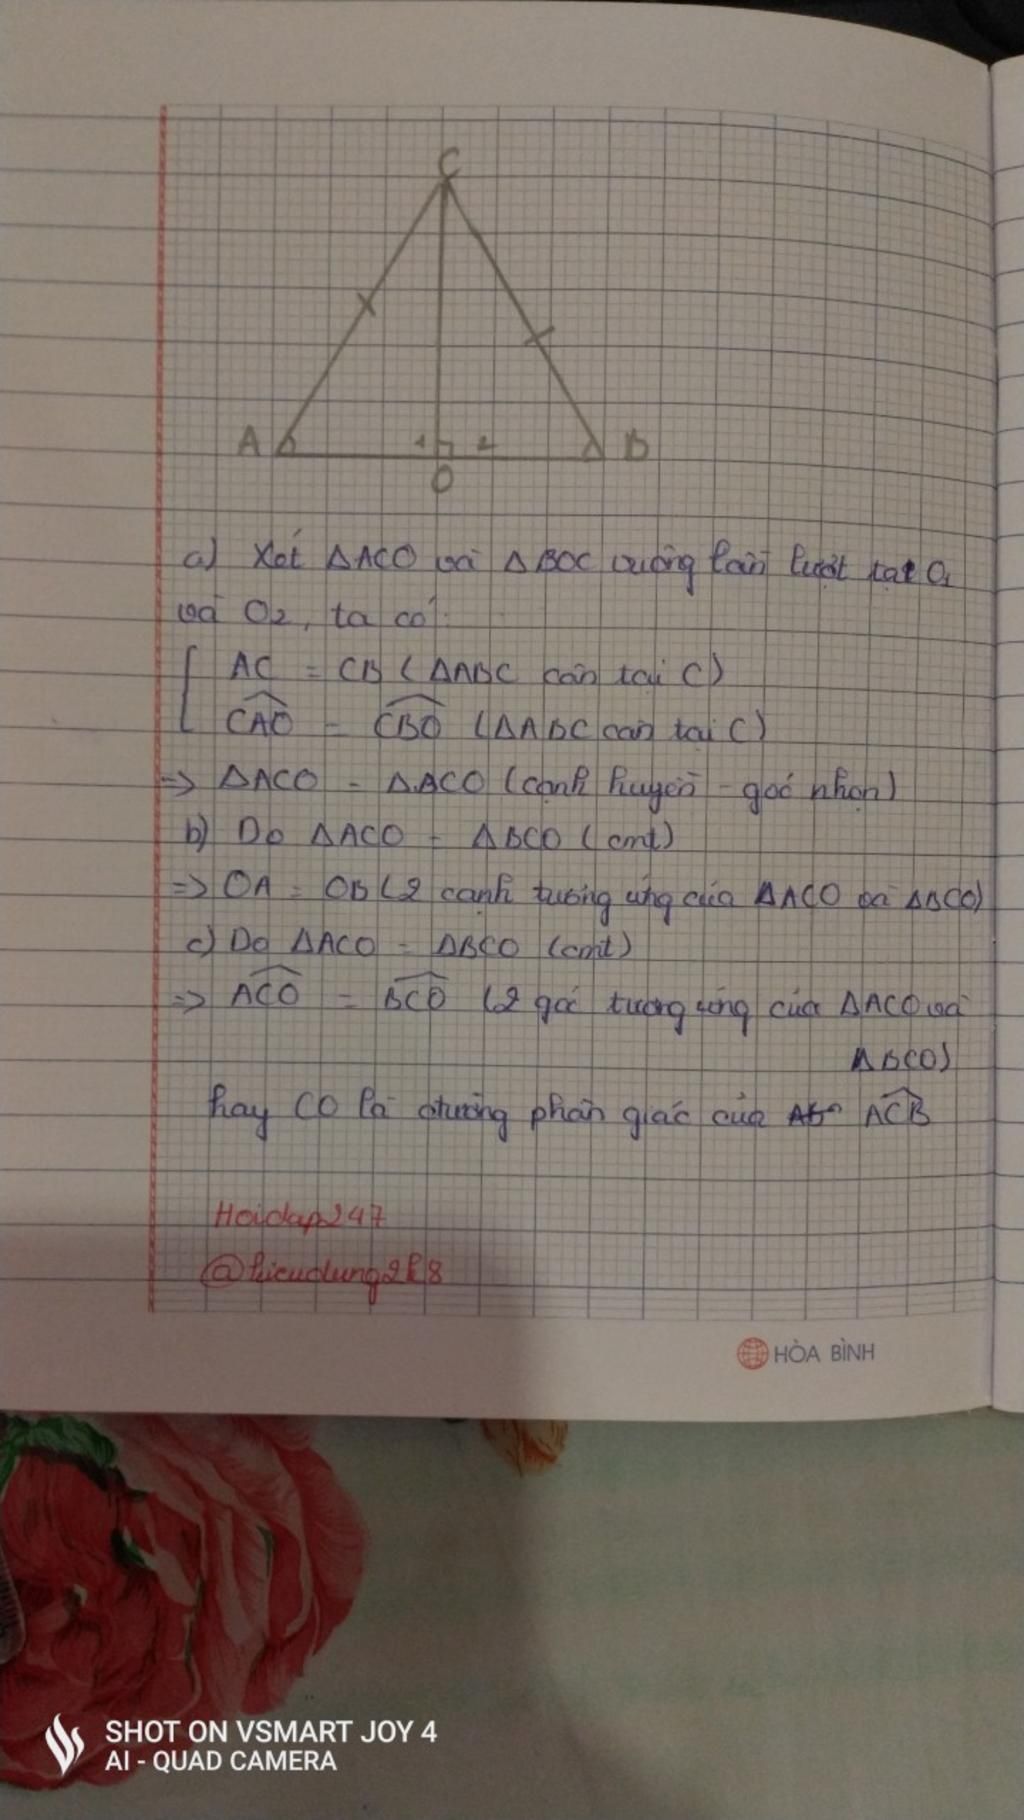 C
A
B
1
2
O
a) Xét ΔACO và ΔBOC vuông lần lượt tại O₁
và O₂, ta có:
AC = CB (ΔABC cân tại C)
CAO = CBO (ΔABC cân tại C)
=> ΔACO = ΔACO (cạnh huyền - góc nhọn)
b) Do ΔACO = ΔBCO (cmt)
=> OA = OB (2 cạnh tương ứng của ΔACO và ΔBCO)
c) Do ΔACO = ΔBCO (cmt)
=> ACO = BCO (2 góc tương ứng của ΔACO và
ΔBCO)
hay CO là đường phân giác của ACB
Hoidap247
@hieudung2k8
HÒA BÌNH
SHOT ON VSMART JOY 4
AI - QUAD CAMERA